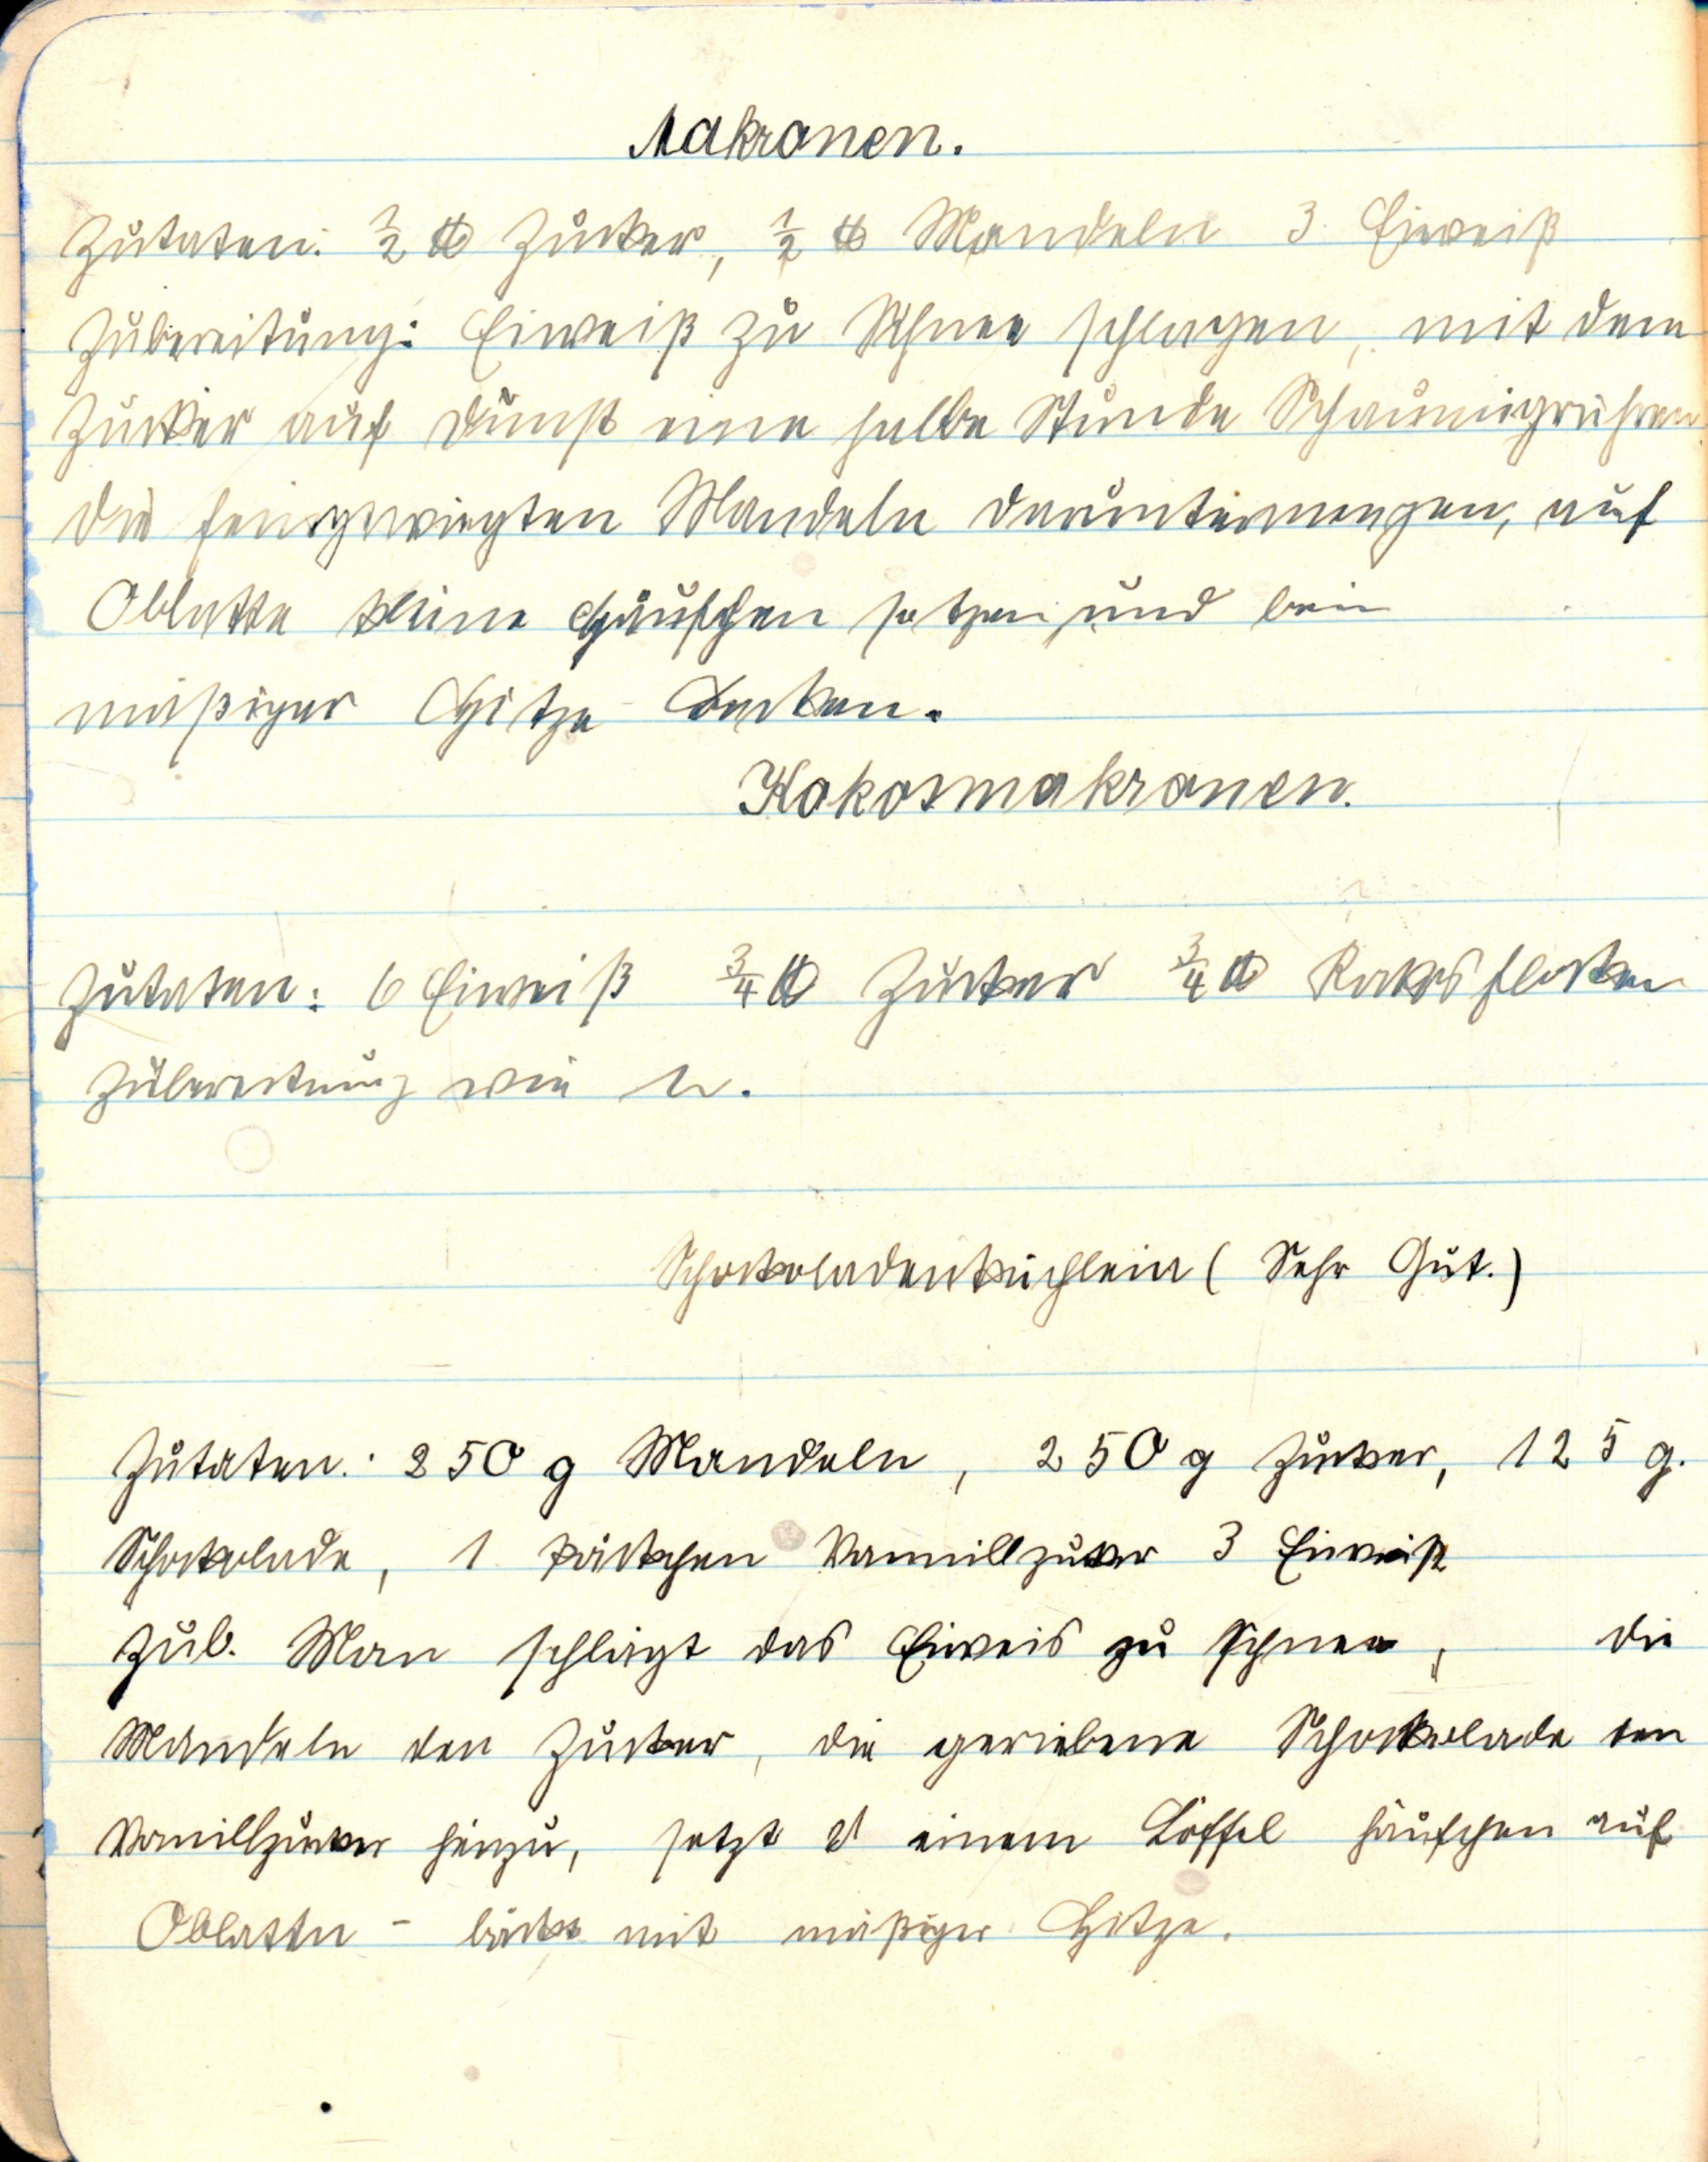 Makronen.
Zutaten: ½ ℔ Zucker, ½ ℔ Mandeln 3 Eiweiß
Zubereitung: Eiweiß zu Schnee schlagen, mit dem
Zucker auf Dunst eine halbe Stunde Schaumigrühren.
die feingewiegten Mandeln daruntermengen, auf
Oblatte kleine Häufchen setzen und bei
mäßiger Hitze backen.
Kokosmakronen.
Zutaten: 6 Eiweiß ¾ ℔ Zucker ¾ ℔ Kokosflocken
Zubereitung wie
Schokoladenküchlein ( Sehr Gut.)
Zutaten: 250 g Mandeln, 250 g Zucker, 125 g.
Schokolade, 1 Päckchen Vannillzucker 3 Eiweiß
Zub. Man schlägt das Eiweis zu Schnee, die
Mandeln den Zucker, die geriebene Schokolade den
Vanillzucker hinzu, setzt einem Löffel häufchen auf
Oblatten - bäckt mit mäßiger Hitze.